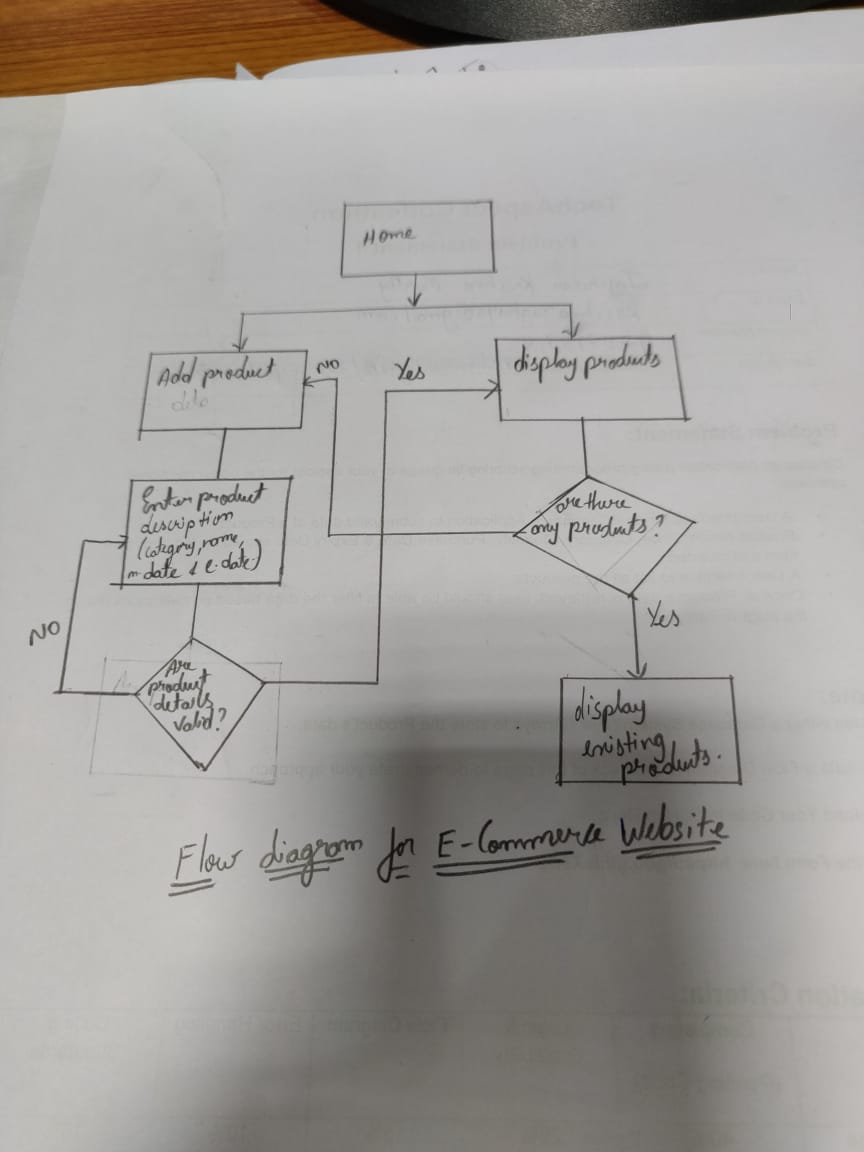 Home
Add product
NO
Yes
display products
Enter product
description
(category, name,
m-date & e-date)
are there
any products?
NO
Yes
Are
product
details
valid?
display
existing
products.
Flow diagram for E-Commerce Website